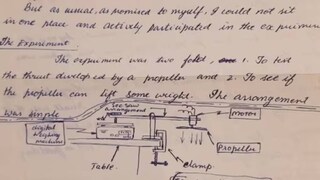 But as usual, as promised to myself, I could not sit
in one place and actively participated in the experiment
The Experiment
The experiment was two fold, 1. To test
the thrust developed by a propeller and 2. To see if
the propeller can lift some weight. The arrangement
was simple
arrangement
motor
digital
weighing machine
propeller
Table
Clamp